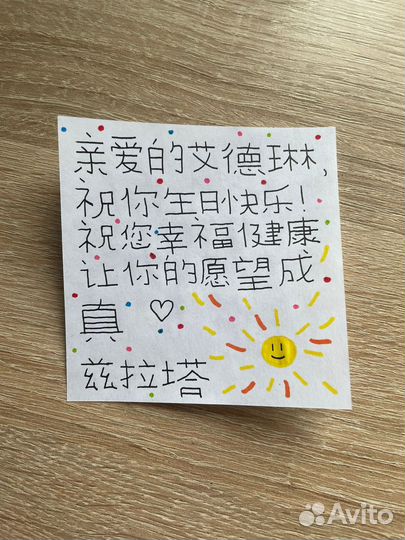 亲爱的艾德琳,
祝你生日快乐!
祝您幸福健康
让你的愿望成
真 ♡
兹拉塔
Avito